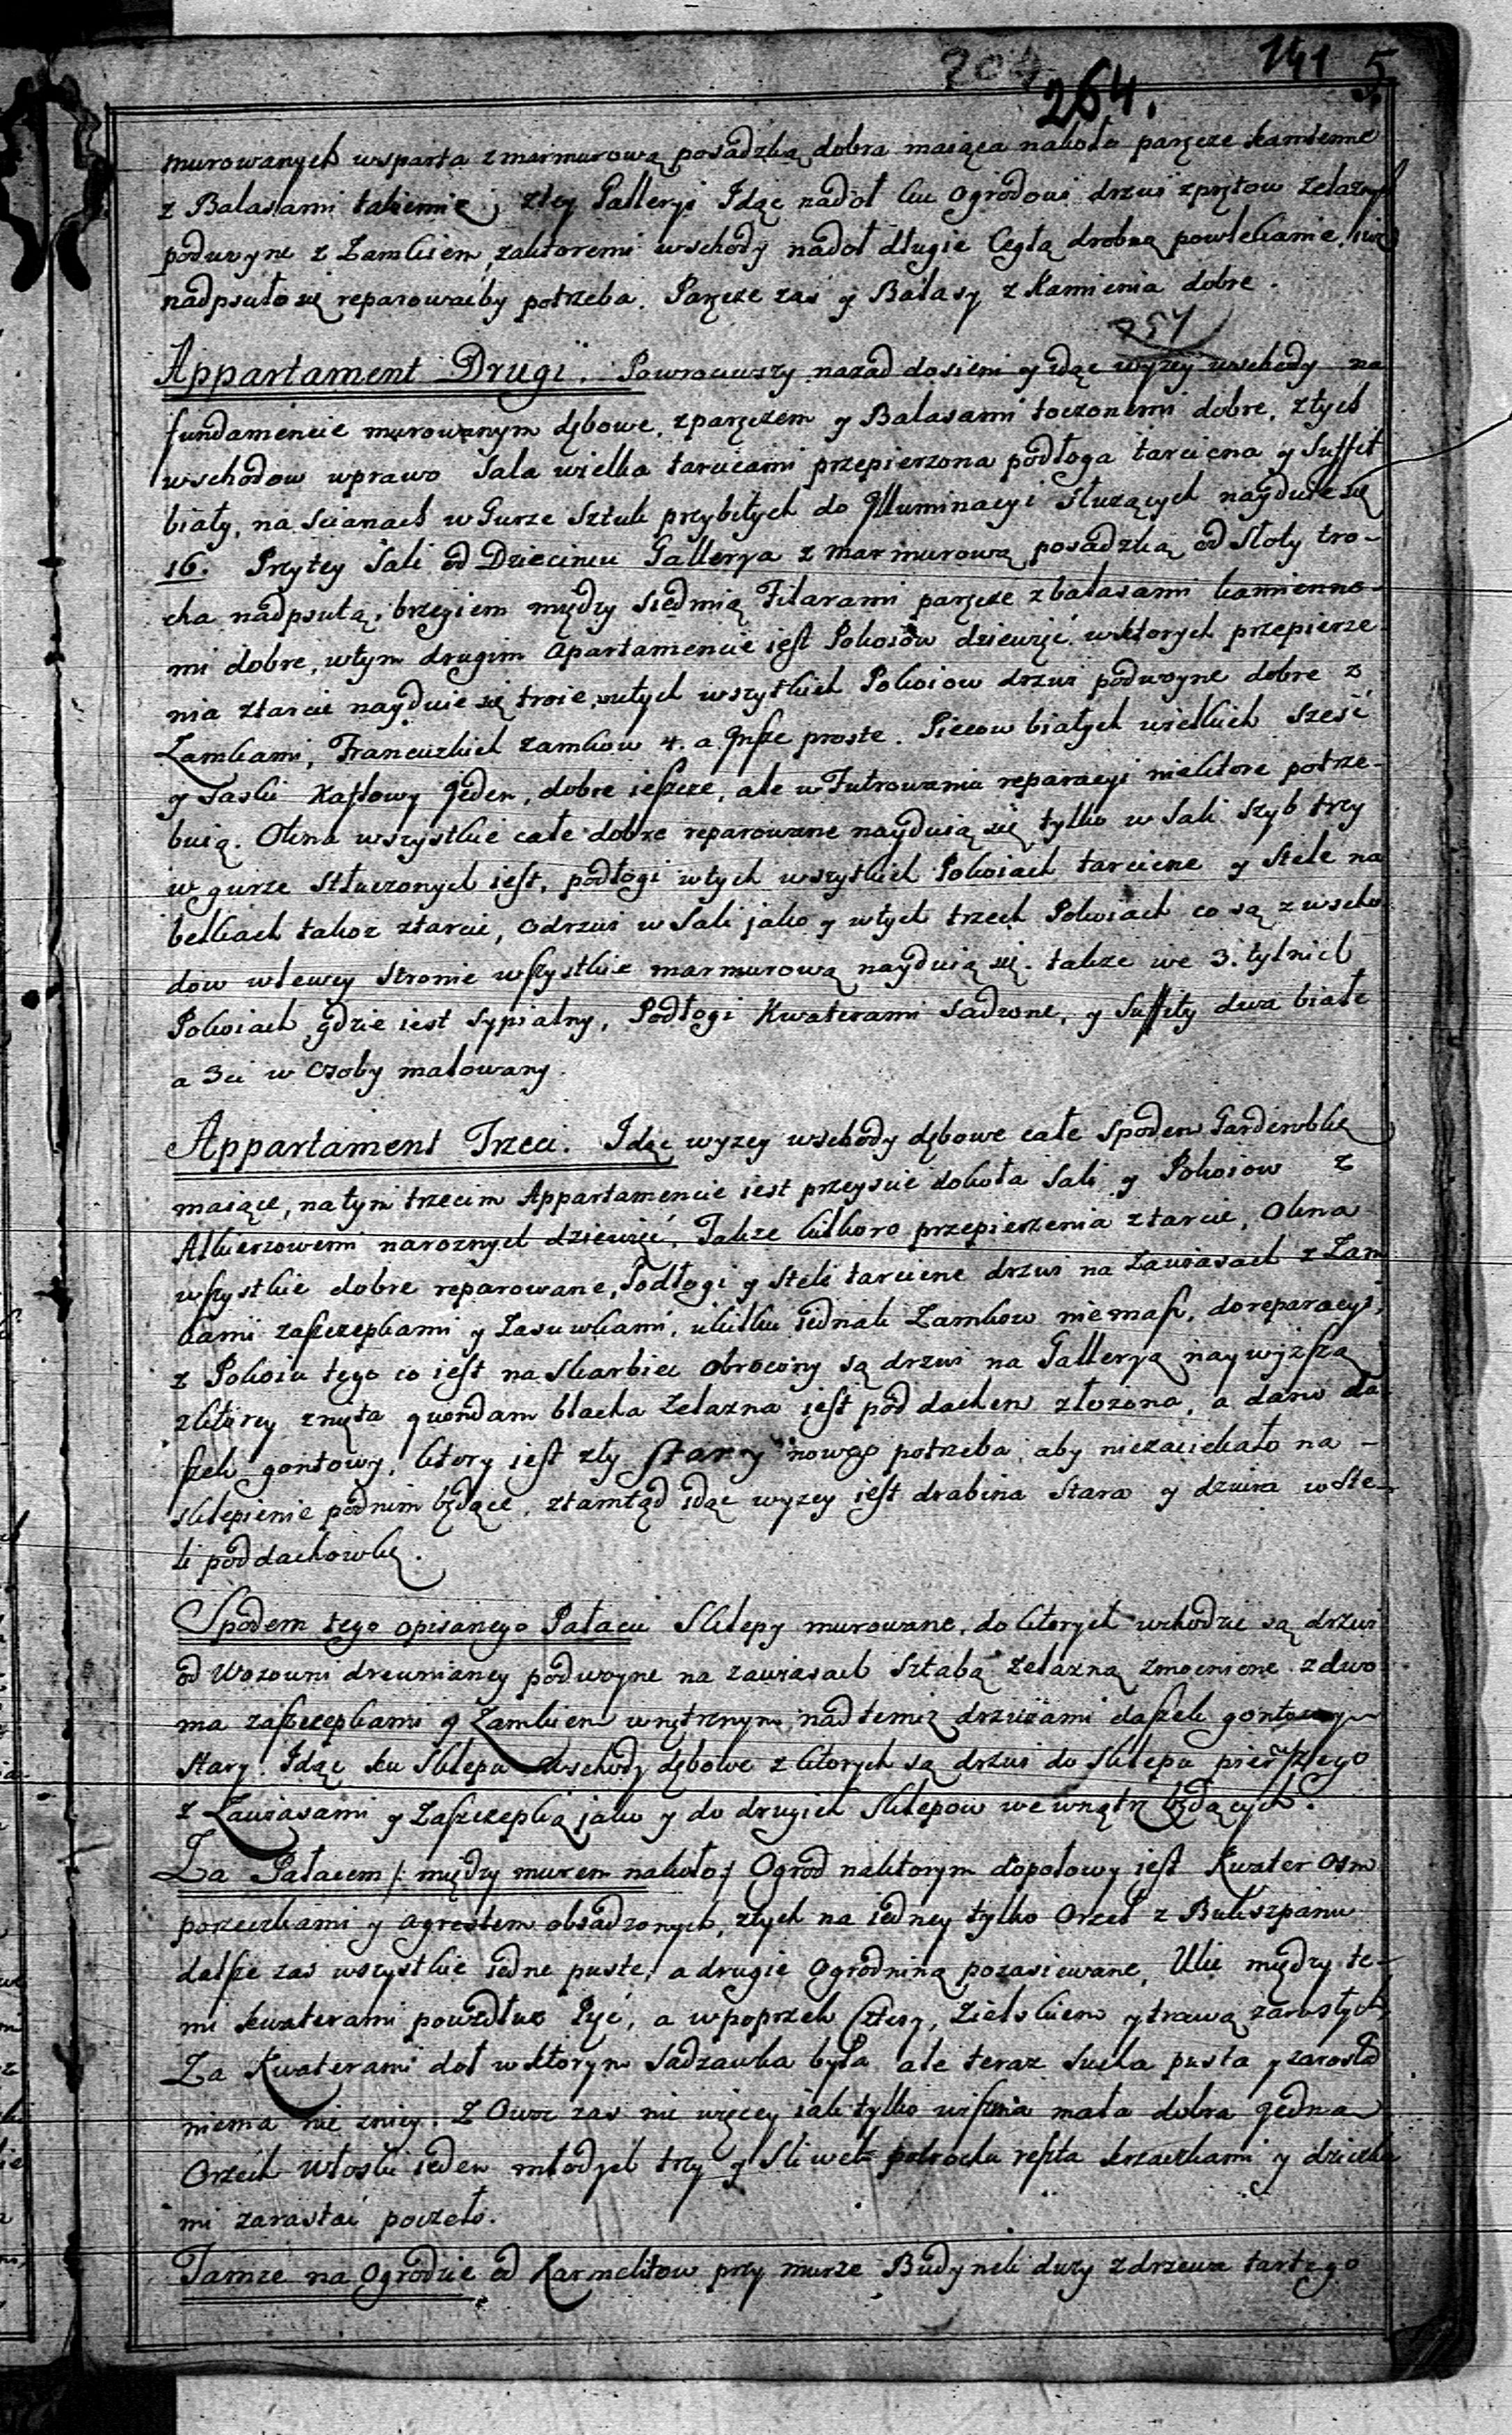 204
264.
141 5
murowanych wsparta z marmurową posadzką dobra maiąca nakoło paręcze kamienne
z Balasami takiemiż, z tey Galleryi Idąc nadoł ku Ogrodowi drzwi z prętow żelaznych
podwoyne z Zamkiem, zaktoremi wschody nadoł długie Cegłą drobną powlekanie,
nadpsuło się reparowaćby potrzeba. Paręcze zaś y Balasy z Kamienia dobre.
254
Appartament Drugi. Powrociwszy nazad dosieni y idąc wyzey wschody na
fundamencie murowanym dębowe, z paręczem y Balasami toczonemi dobre, z tych
wschodow wprawo Sala wielka tarcicami przepierzona podłoga tarcicna y Suffit
biały, na Scianach w Gurze Sztuk przybitych do Illuminacyi służących nayduie się
16. Przy tey Sali od Dziecinca Gallerya z marmurową posadzką od Słoty tro-
cha nadpsutą, brzegiem między siedmią Filarami paręcze z balasami kamienne-
mi dobre, wtym drugim Apartamencie iest Pokoiow dziewięć wktorych przepierze-
nia z tarcic nayduie się troie, wtych wszytkich Pokoiow drzwi podwoyne dobre z
Zamkami, Francuzkich zamkow 4. a Insze proste. Piecow białych wielkich sześć
y Saski Kaflowy Jeden, dobre ieszcze, ale w Futrowaniu reparacyi niektore potrze-
buią. Okna wszystkie całe dobre reparowane nayduią się tylko w Sali szyb trzy
w gurze stłuczonych iest, podłogi wtych wszytkich Pokoiach tarcicne y Stele na
belkach takoż z tarcic, Odrzwi w Sali jako y wtych trzech Pokoiach co są z wscho-
dow wlewey stronie wszystkie marmurową nayduią się. także we 3. tylnich
Pokoiach gdzie iest sypialny, Podłogi Kwaterami sadzone, y Suffity dwa białe
a 3ci w Osoby malowany.
Appartament Trzeci. Idąc wyzey wschody dębowe całe Spodem Garderobkę
maiące, natym trzecim Appartamencie iest przeyscie dokoła Sali y Pokoiow z
Alkierzowemi naroznych dziewięć, Także kilkoro przepierzenia z tarcic, Okna
wszystkie dobre reparowane, Podłogi y Steli tarcicne drzwi na Zawiasach z Zam
kami zaszczepkami y Zasuwkami, ukilku iednak Zamkow niemasz, do reparacyi,
z Pokoiu tego co iest na Skarbiec Obrocony są drzwi na Galleryą naywyższą
zktorey zięta quondam blacha Zelazna iest pod dachem złożona, a dano da-
szek gontowy, ktory iest zły stary nowego potrzeba, aby niezaciekało na -
sklepienie podnim będące, ztamtąd idąc wyzey iest drabina Stara y dziura wste-
li pod dachowkę.
Spodem tego opisanego Pałacu Sklepy murowane, do ktorych wchodzie są drzwi
od Wozowni drewnianey podwoyne na zawiasach Sztabą Zelazną zmocnione z dwo
ma zaszczepkami y Zamkiem wnętrznym, nad temiż drzwiami daszek gontowy
stary. Idąc ku Sklepu Wschody dębowe z ktorych są drzwi do Sklepu pierwszego
z Zawiasami y Zaszczepką jako y do drugich Sklepow wewnątrz będących.
Za Pałacem /: między murem nakoło :/ Ogrod naktorym dopołowy iest Kwater Osm
porzeczkami y agrestem obsadzonych, z tych na iedney tylko Orzeł z Bukszpanu
dalsze zas wszystkie iedne puste, a drugie Ogrodniną pozasiewane, Ulic między te-
mi kwaterami powzdłuż Pięć, a wpoprzek Cztery, Zielskiem y trawą zarosłych
Za Kwaterami doł wktorym Sadzawka była ale teraz sucha pusta y zarosła
niema nic zniey. Z Owoc zas nic więcey iak tylko wisznia mała dobra Jedna
Orzech Włoski ieden młodych trzy y Sliwek potrochu reszta krzaczkami y dziczka
mi zarastać poczęło.
Tamże na Ogrodzie od Karmelitow przy murze Budynek duży z drzewa tartego